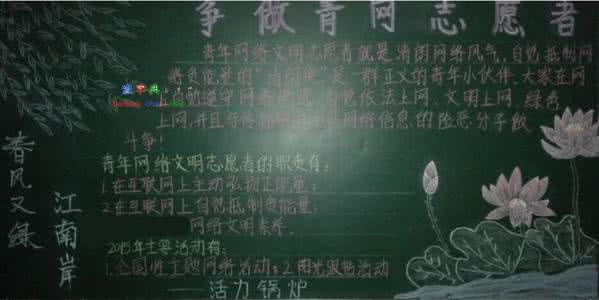 争做青网志愿者
青年网络文明志愿者就是清朗网络风气,自觉抵制网
络负能量的"清朗侠"是一群正义的青年小伙伴,大家在网
上遵守网络依法上网,文明上网,绿色
上网,并且与传播网络信息的险恶分子做
斗争!
青年网络文明志愿者的职责有:
1.在互联网上主动弘扬正能量;
2.在互联网上自觉抵制负能量;
网络文明素养.
2015年主要活动有:
1.全国性主题网络活动;2.阳光跟帖活动
——活力锅炉
春风又绿
江南岸